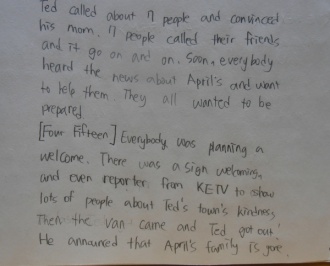 Ted called about 17 people and convinced
his mom. 17 people called their friends
and it go on and on. Soon, everybody
heard the news about April's and want
to help them. They all wanted to be
prepared.
[Four Fifteen] Everybody was planning a
welcome. There was a sign welcoming,
and even reporter from KETV to show
lots of people about Ted's town's kindness.
Then the van came and Ted got out!
He annouced that April's family is gone.